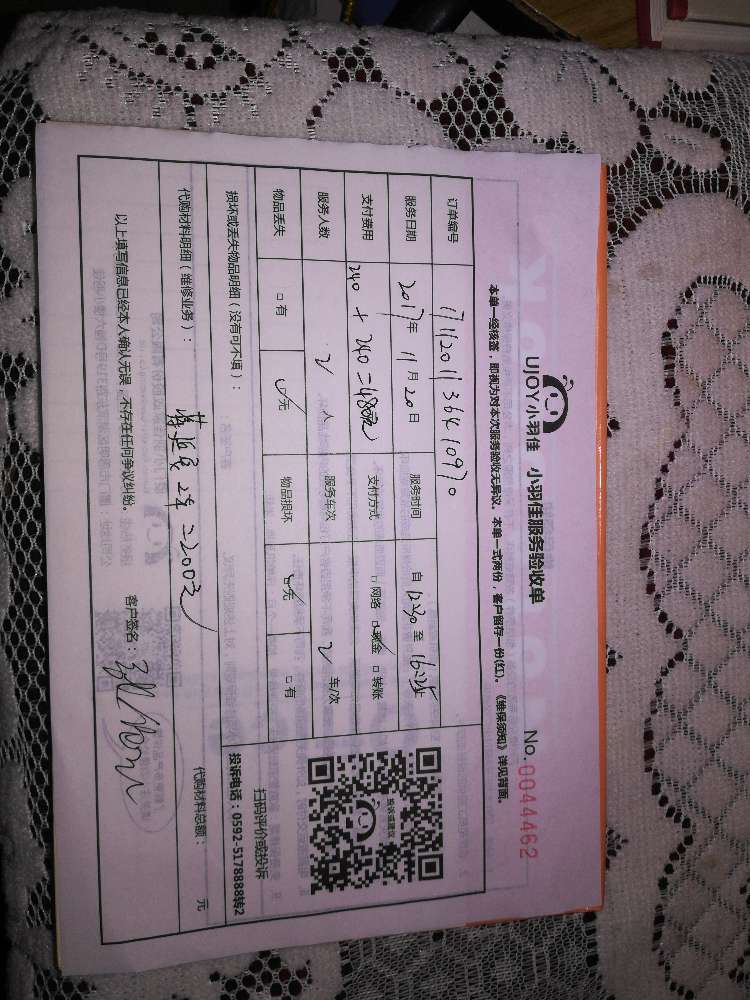 UJOY小羽佳 小羽佳服务验收单 No.0044462
本单一经核签，即视为对本次服务验收无异议。本单一式两份，客户留存一份(红)。《维保须知》详见背面。
订单编号 1711201136410970
服务日期 2017年 11月 20日 服务时间 自 12:30 至 16:25止
支付费用 240 + 240 = 480元 支付方式 □网络 □现金 □转账
服务人数 2 人 服务车次 2 车/次
物品丢失 □有 □无 物品损坏 □无 □有
损坏或丢失物品明细（没有可不填）：
扫码评价或投诉
投诉电话：0592-5178888转2
代购材料明细（维修业务）： 2车 = 200元 代购材料总额： 元
以上填写信息已经本人确认无误，不存在任何争议纠纷。 客户签名：